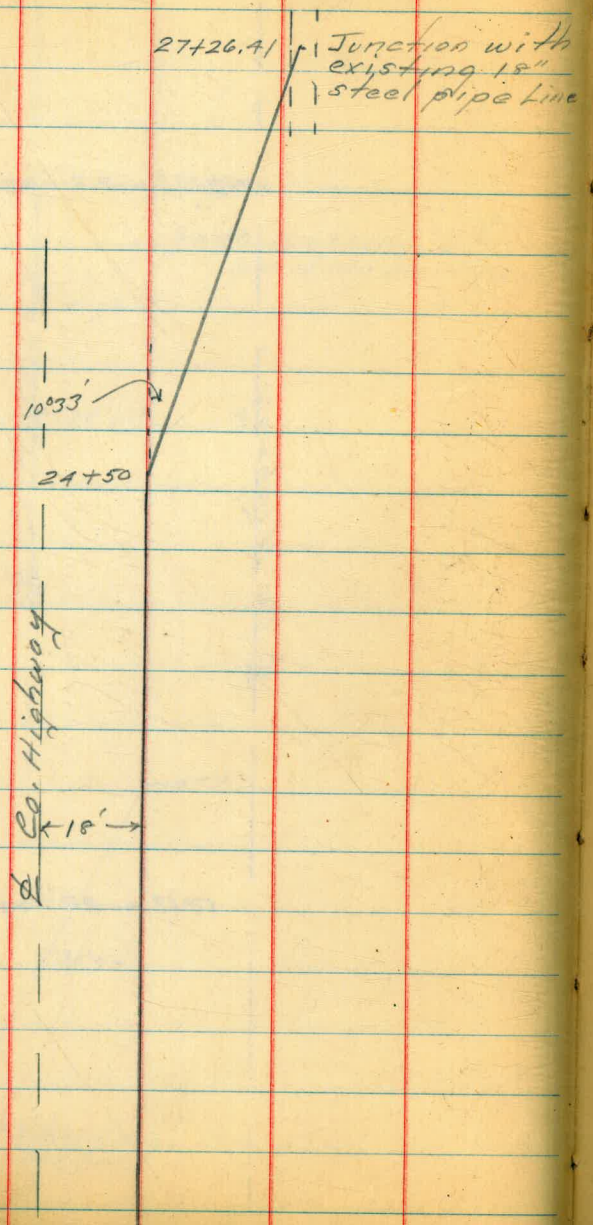 27+26.41
Junction with
existing 18"
steel pipe Line
10°33'
24+50
℄ Co. Highway
18'